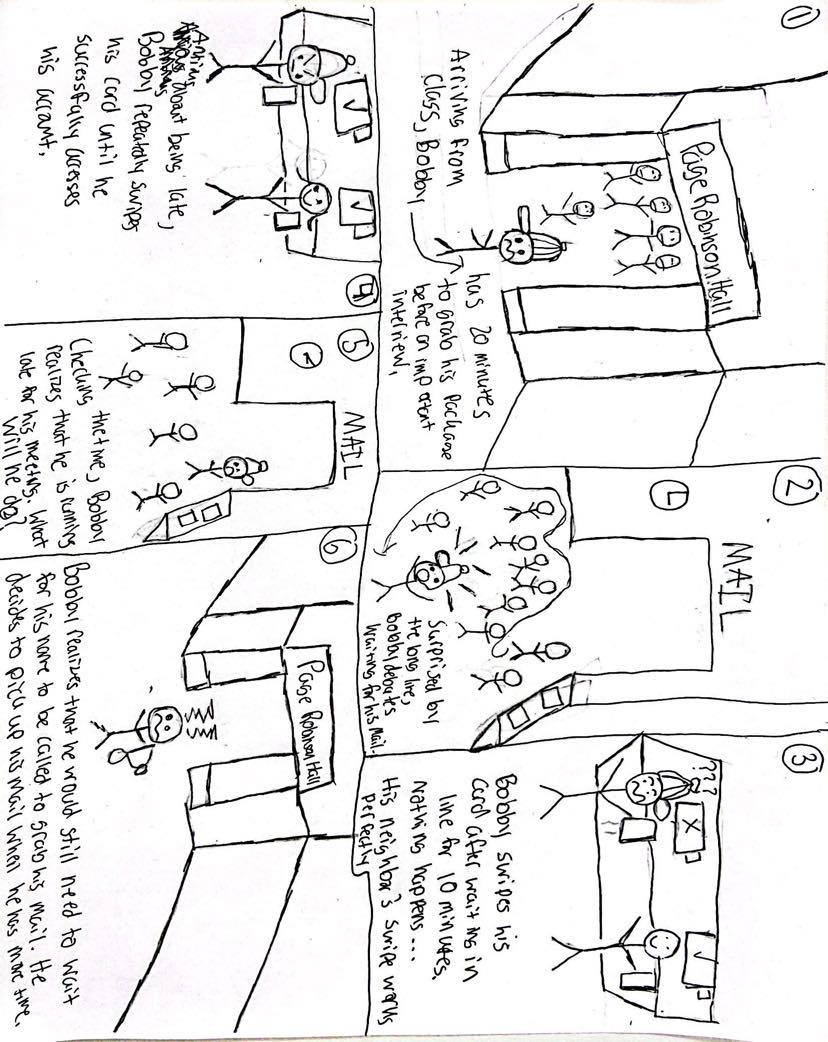 1
Page Robinson Hall
Arriving from
class, Bobby
has 20 minutes
to grab his package
before an important
interview.
2
MAIL
Surprised by
the long line,
Bobby debates
waiting for his Mail.
3
???
X
✓
Bobby swipes his
card after waiting in
line for 10 minutes.
Nothing happens...
His neighbor's swipe works
perfectly
4
✓
✓
about being late,
Bobby repeatedly swipes
his card until he
successfully accesses
his account.
5
MAIL
Checking the time, Bobby
realizes that he is running
late for his meeting. What
will he do?
6
Page Robinson Hall
Bobby realizes that he would still need to wait
for his name to be called to grab his mail. He
decides to pick up his mail when he has more time.